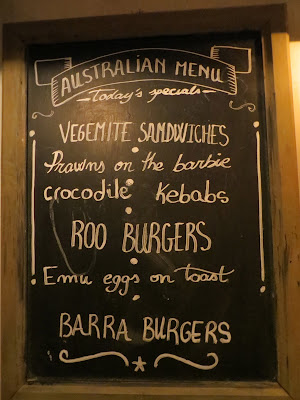 AUSTRALIAN MENU
-Today's specials-
VEGEMITE SANDWICHES
Prawns on the barbie
crocodile Kebabs
ROO BURGERS
Emu eggs on toast
BARRA BURGERS